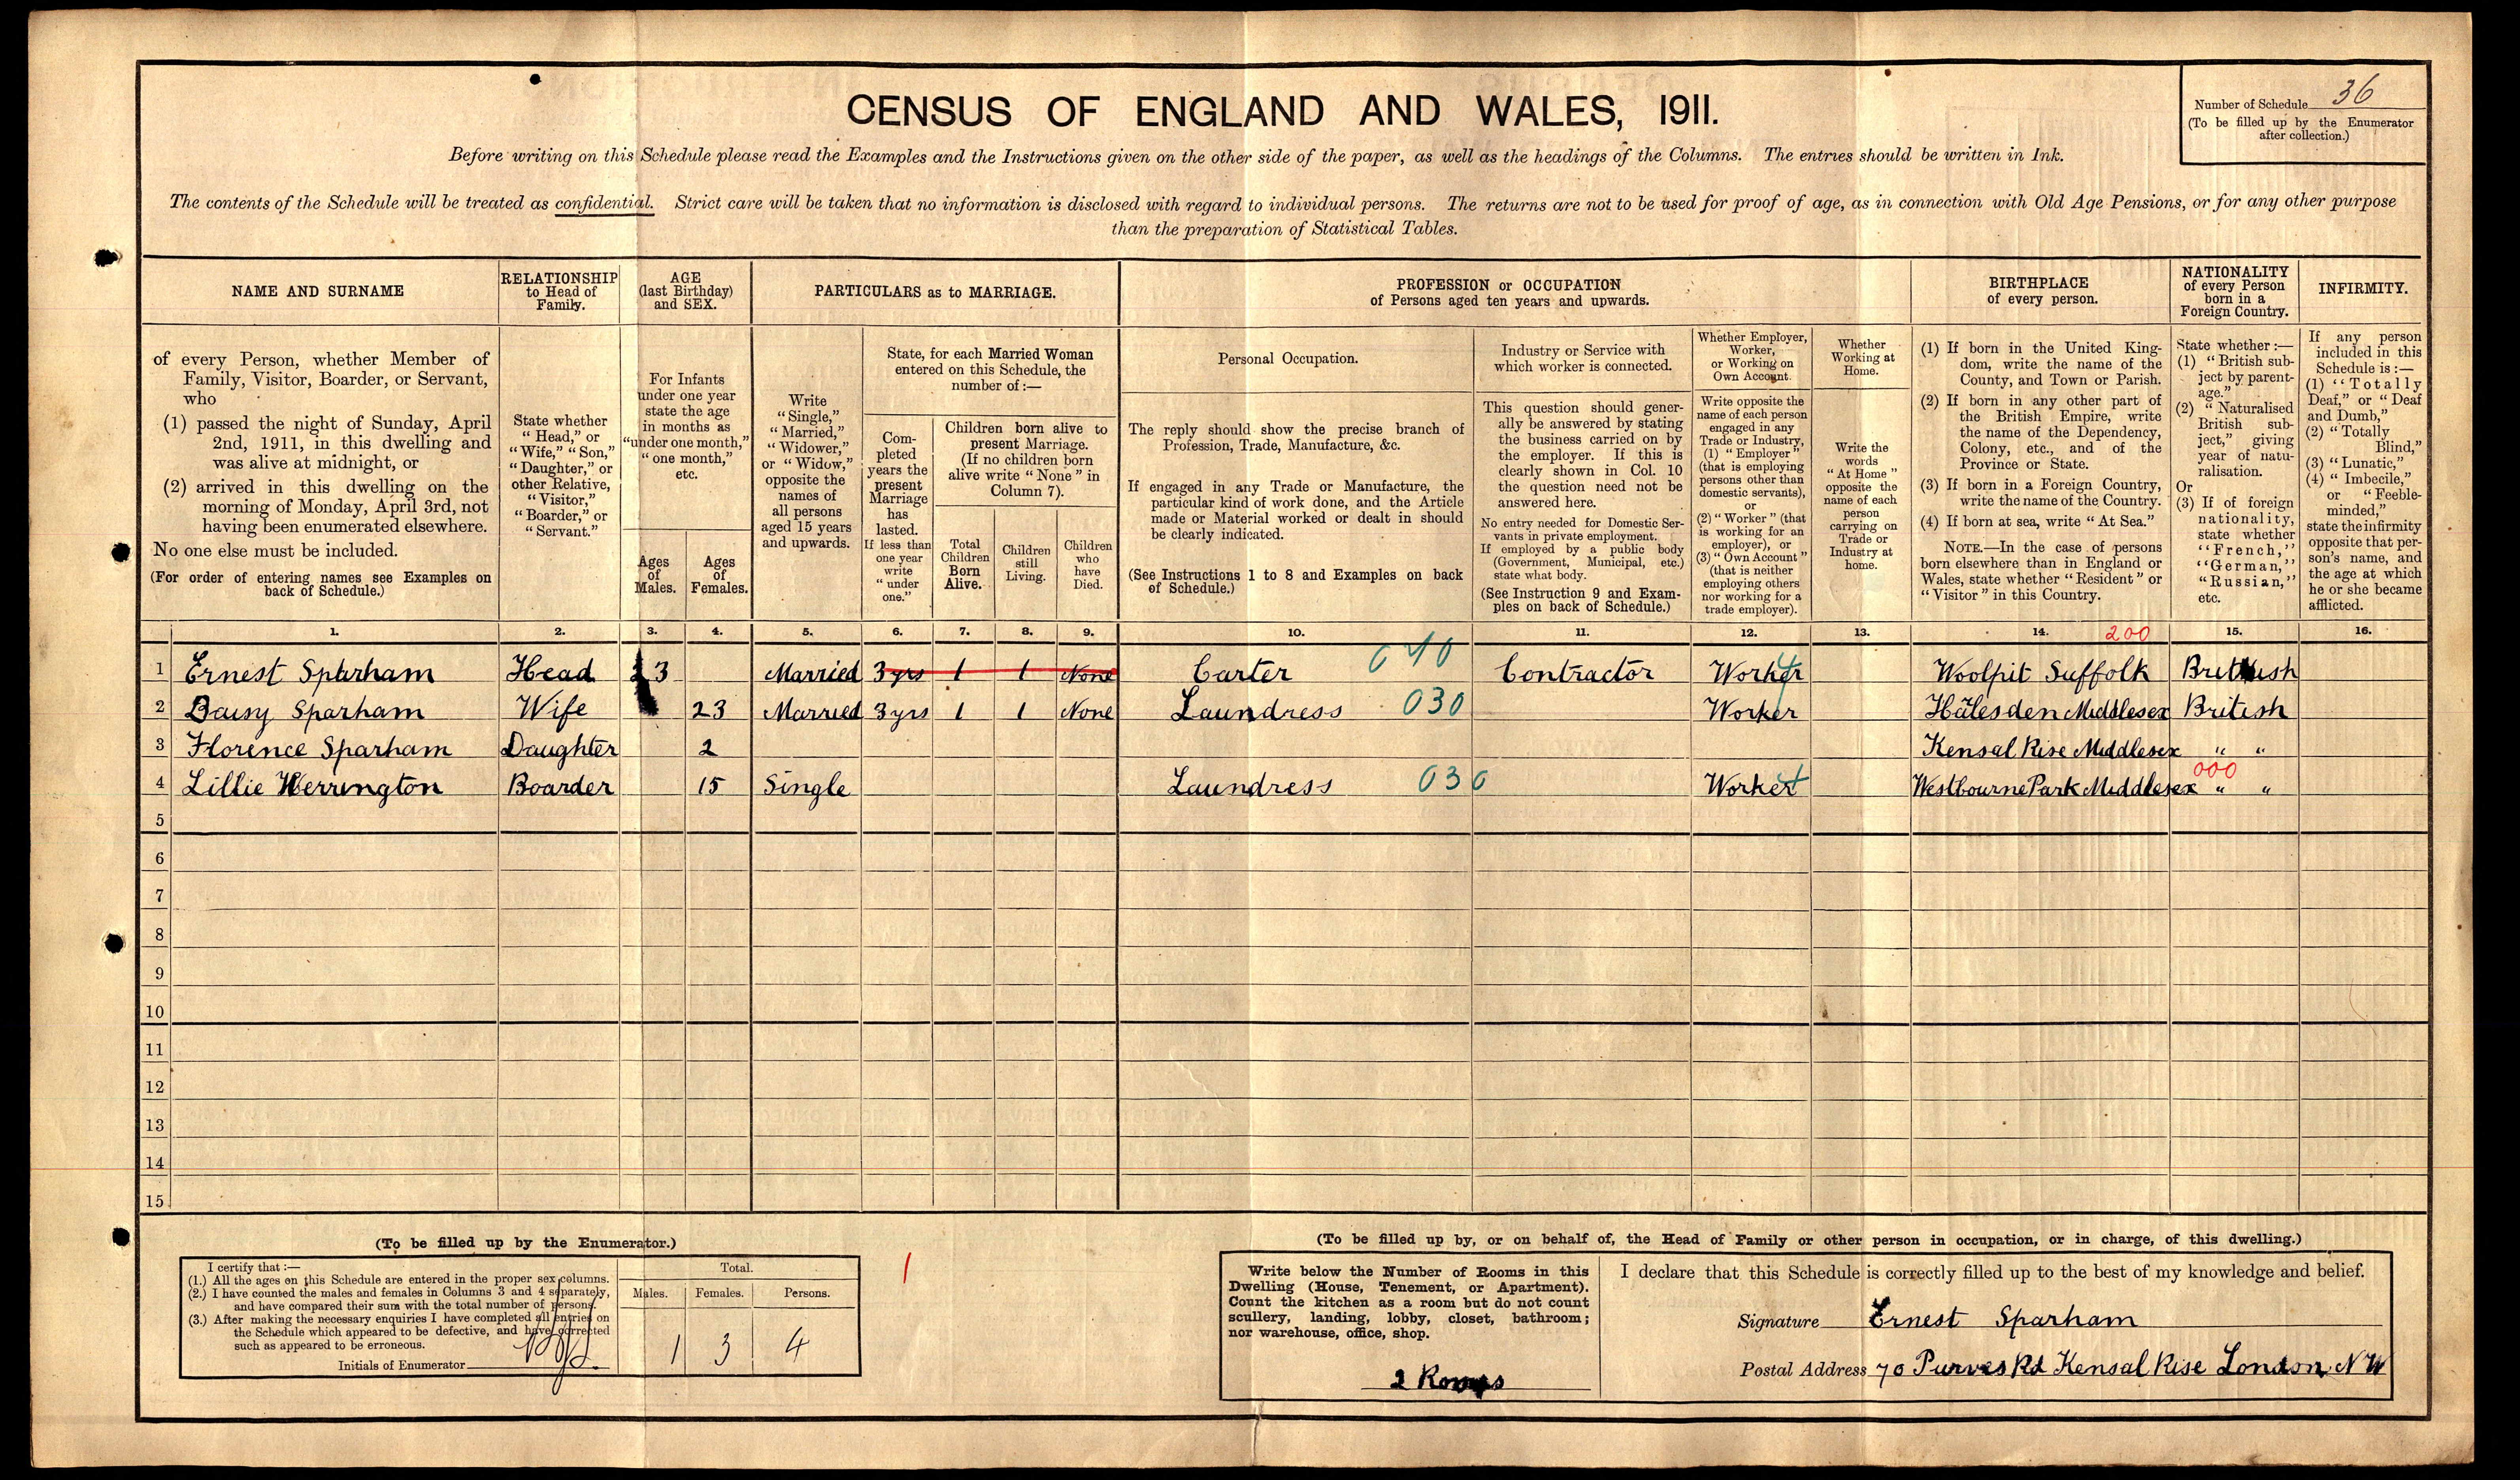 CENSUS OF ENGLAND AND WALES, 1911.
Number of Schedule 36
(To be filled up by the Enumerator
after collection.)
Before writing on this Schedule please read the Examples and the Instructions given on the other side of the paper, as well as the headings of the Columns. The entries should be written in Ink.
The contents of the Schedule will be treated as confidential. Strict care will be taken that no information is disclosed with regard to individual persons. The returns are not to be used for proof of age, as in connection with Old Age Pensions, or for any other purpose
than the preparation of Statistical Tables.
NAME AND SURNAME
RELATIONSHIP
to Head of
Family.
AGE
(last Birthday)
and SEX.
PARTICULARS as to MARRIAGE.
PROFESSION or OCCUPATION
of Persons aged ten years and upwards.
BIRTHPLACE
of every person.
NATIONALITY
of every Person
born in a
Foreign Country.
INFIRMITY.
of every Person, whether Member of
Family, Visitor, Boarder, or Servant,
who
(1) passed the night of Sunday, April
2nd, 1911, in this dwelling and
was alive at midnight, or
(2) arrived in this dwelling on the
morning of Monday, April 3rd, not
having been enumerated elsewhere.
No one else must be included.
(For order of entering names see Examples on
back of Schedule.)
State whether
"Head," or
"Wife," "Son,"
"Daughter," or
other Relative,
"Visitor,"
"Boarder," or
"Servant."
For Infants
under one year
state the age
in months as
"under one month,"
"one month,"
etc.
Ages
of
Males.
Ages
of
Females.
Write
"Single,"
"Married,"
"Widower,"
or "Widow,"
opposite the
names of
all persons
aged 15 years
and upwards.
State, for each Married Woman
entered on this Schedule, the
number of :—
Com-
pleted
years the
present
Marriage
has
lasted.
If less than
one year
write
"under
one."
Children born alive to
present Marriage.
(If no children born
alive write "None" in
Column 7).
Total
Children
Born
Alive.
Children
still
Living.
Children
who
have
Died.
Personal Occupation.
The reply should show the precise branch of
Profession, Trade, Manufacture, &c.
If engaged in any Trade or Manufacture, the
particular kind of work done, and the Article
made or Material worked or dealt in should
be clearly indicated.
(See Instructions 1 to 8 and Examples on back
of Schedule.)
Industry or Service with
which worker is connected.
This question should gener-
ally be answered by stating
the business carried on by
the employer. If this is
clearly shown in Col. 10
the question need not be
answered here.
No entry needed for Domestic Ser-
vants in private employment.
If employed by a public body
(Government, Municipal, etc.)
state what body.
(See Instruction 9 and Exam-
ples on back of Schedule.)
Whether Employer,
Worker,
or Working on
Own Account.
Write opposite the
name of each person
engaged in any
Trade or Industry,
(1) "Employer"
(that is employing
persons other than
domestic servants),
or
(2) "Worker" (that
is working for an
employer), or
(3) "Own Account"
(that is neither
employing others
nor working for a
trade employer).
Whether
Working at
Home.
Write the
words
"At Home"
opposite the
name of each
person
carrying on
Trade or
Industry at
home.
(1) If born in the United King-
dom, write the name of the
County, and Town or Parish.
(2) If born in any other part of
the British Empire, write
the name of the Dependency,
Colony, etc., and of the
Province or State.
(3) If born in a Foreign Country,
write the name of the Country.
(4) If born at sea, write "At Sea."
NOTE.—In the case of persons
born elsewhere than in England or
Wales, state whether "Resident" or
"Visitor" in this Country.
State whether :—
(1) "British sub-
ject by parent-
age."
(2) "Naturalised
British sub-
ject," giving
year of natu-
ralisation.
Or
(3) If of foreign
nationality,
state whether
"French,"
"German,"
"Russian,"
etc.
If any person
included in this
Schedule is :—
(1) "Totally
Deaf," or "Deaf
and Dumb,"
(2) "Totally
Blind,"
(3) "Lunatic,"
(4) "Imbecile,"
or "Feeble-
minded,"
state the infirmity
opposite that per-
son's name, and
the age at which
he or she became
afflicted.
1. 2. 3. 4. 5. 6. 7. 8. 9. 10. 11. 12. 13. 14. 200 15. 16.
1 Ernest Sparham Head 23 Married 3 yrs 1 1 None Carter 040 Contractor Worker Woolpit Suffolk British
2 Daisy Sparham Wife 23 Married 3 yrs 1 1 None Laundress 030 Worker Halesden Middlesex British
3 Florence Sparham Daughter 2 Kensal Rise Middlesex " "
4 Lillie Herrington Boarder 15 Single Laundress 030 Worker Westbourne Park Middlesex 000 " "
5
6
7
8
9
10
11
12
13
14
15
(To be filled up by the Enumerator.)
I certify that :—
(1.) All the ages on this Schedule are entered in the proper sex columns.
(2.) I have counted the males and females in Columns 3 and 4 separately,
and have compared their sum with the total number of persons.
(3.) After making the necessary enquiries I have completed all entries on
the Schedule which appeared to be defective, and have corrected
such as appeared to be erroneous.
Initials of Enumerator
Total.
Males. Females. Persons.
1 3 4
1
(To be filled up by, or on behalf of, the Head of Family or other person in occupation, or in charge, of this dwelling.)
Write below the Number of Rooms in this
Dwelling (House, Tenement, or Apartment).
Count the kitchen as a room but do not count
scullery, landing, lobby, closet, bathroom;
nor warehouse, office, shop.
2 Rooms
I declare that this Schedule is correctly filled up to the best of my knowledge and belief.
Signature Ernest Sparham
Postal Address 70 Purves Rd Kensal Rise London NW